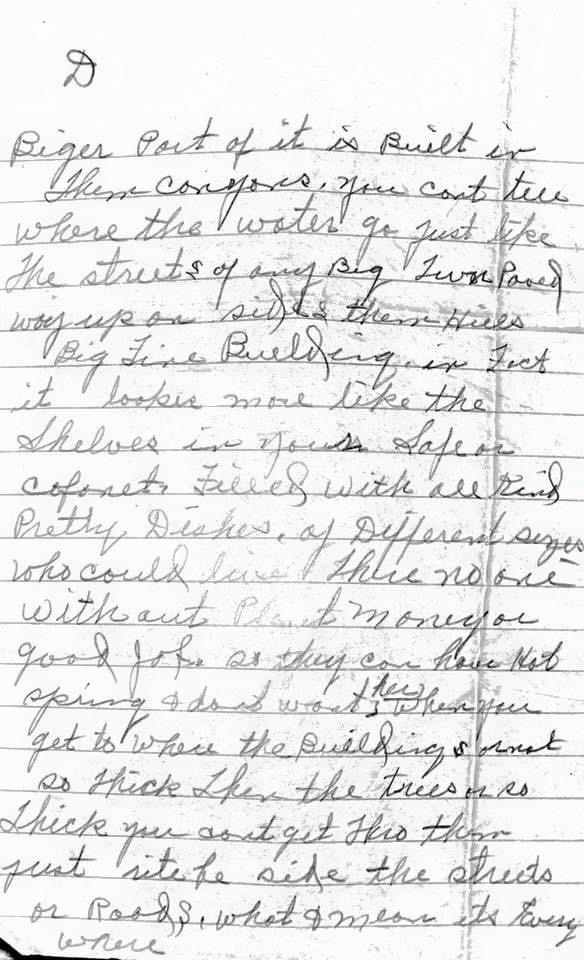 D
Biger Part of it is Built in
them canyons. you cant tell
where the water go just like
the streets of any Big Town Paved
way up on sides them Hills
Big Fine Building. in Fact
it lookes more like the
Shelves in your Safe or
cabonet. Filled with all Kind
Pretty Dishes. of Different sizes
who could live there no one
without Plent money or
good Job. so they can have Hot
spring I dont want her when you
get to where the Buildings ornot
so thick then the trees or so
thick you cant get thro them
just rite be side the streets
or Roads, what I mean its Every
where